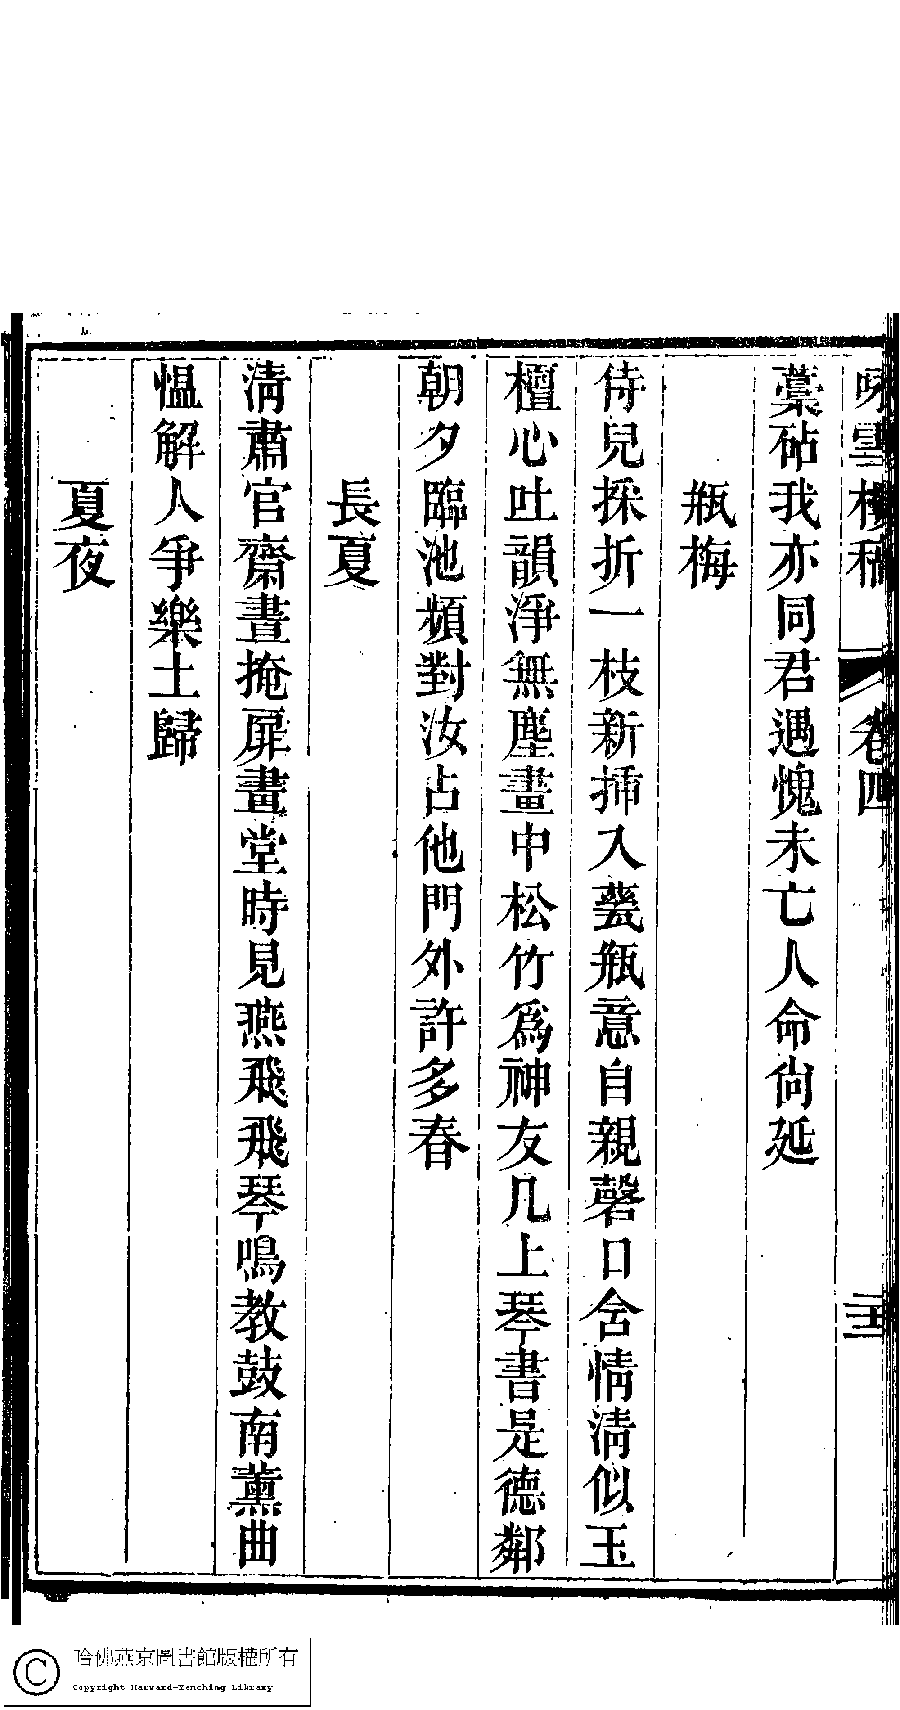 詠雪樓稿 卷四
藁砧我亦同君遇愧未亡人命尙延
瓶梅
侍兒採折一枝新揷入甆瓶意自親磬口含情淸似玉
檀心吐韻淨無塵畫中松竹爲神友几上琴書是德鄰
朝夕臨池頻對汝占他門外許多春
長夏
淸肅官齋晝掩屝畫堂時見燕飛飛琴鳴教鼓南薰曲
愠解人爭樂土歸
夏夜
哈佛燕京圖書館版權所有
Copyright Harvard-Yenching Library